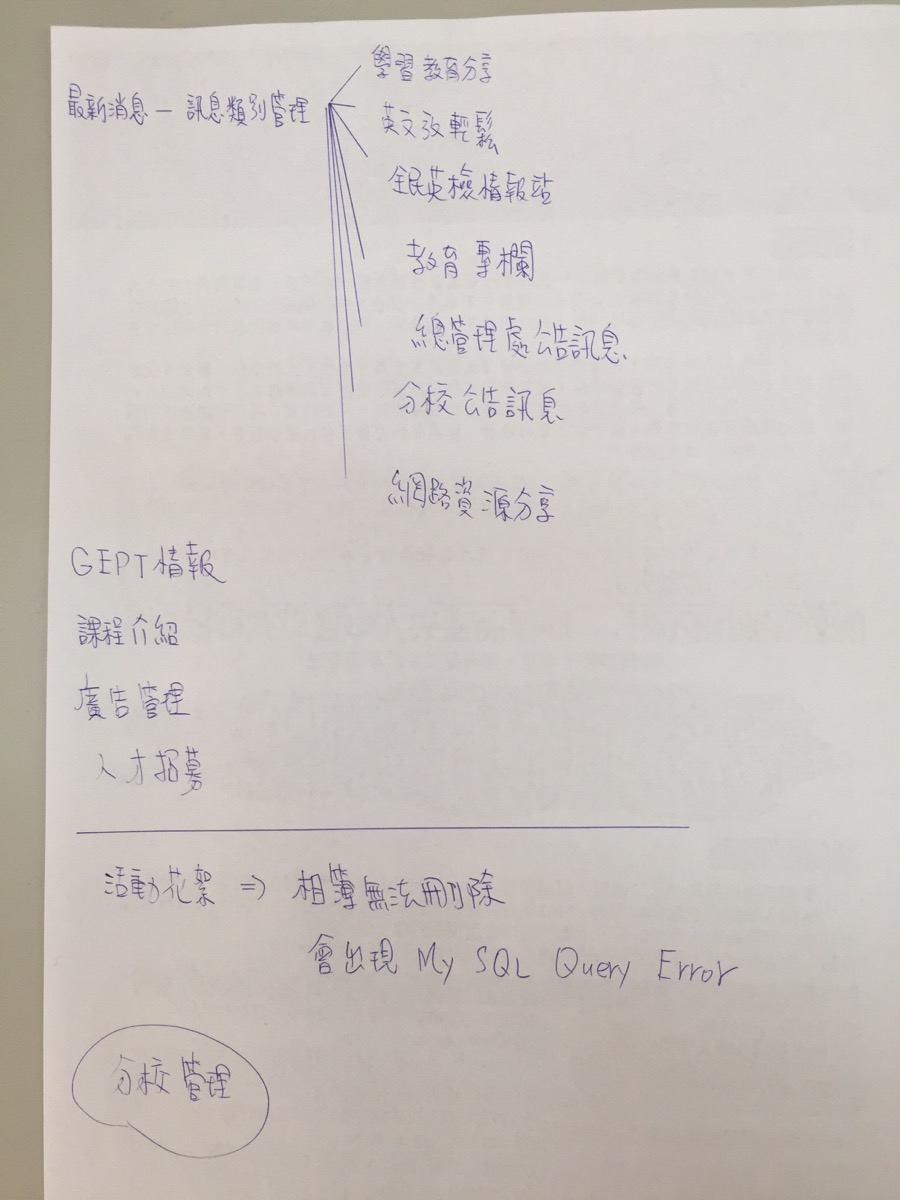 最新消息 — 訊息類別管理
學習教育分享
英文放輕鬆
全民英檢情報站
教育專欄
總管理處公告訊息
分校公告訊息
網路資源分享
GEPT情報
課程介紹
廣告管理
人才招募
活動花絮 => 相簿無法刪除
會出現 My SQL Query Error
分校管理